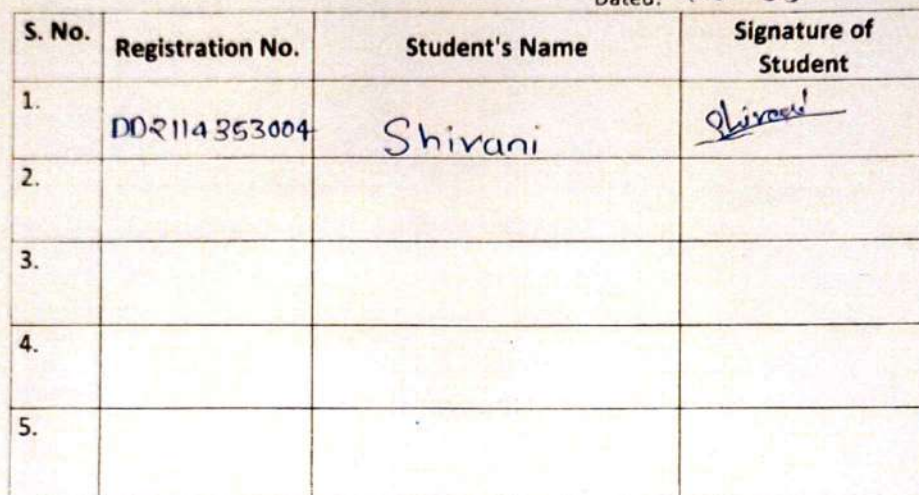 Dated:
S. No. Registration No. Student's Name Signature of Student
1. DD2114353004 Shivani Shivani
2.
3.
4.
5.